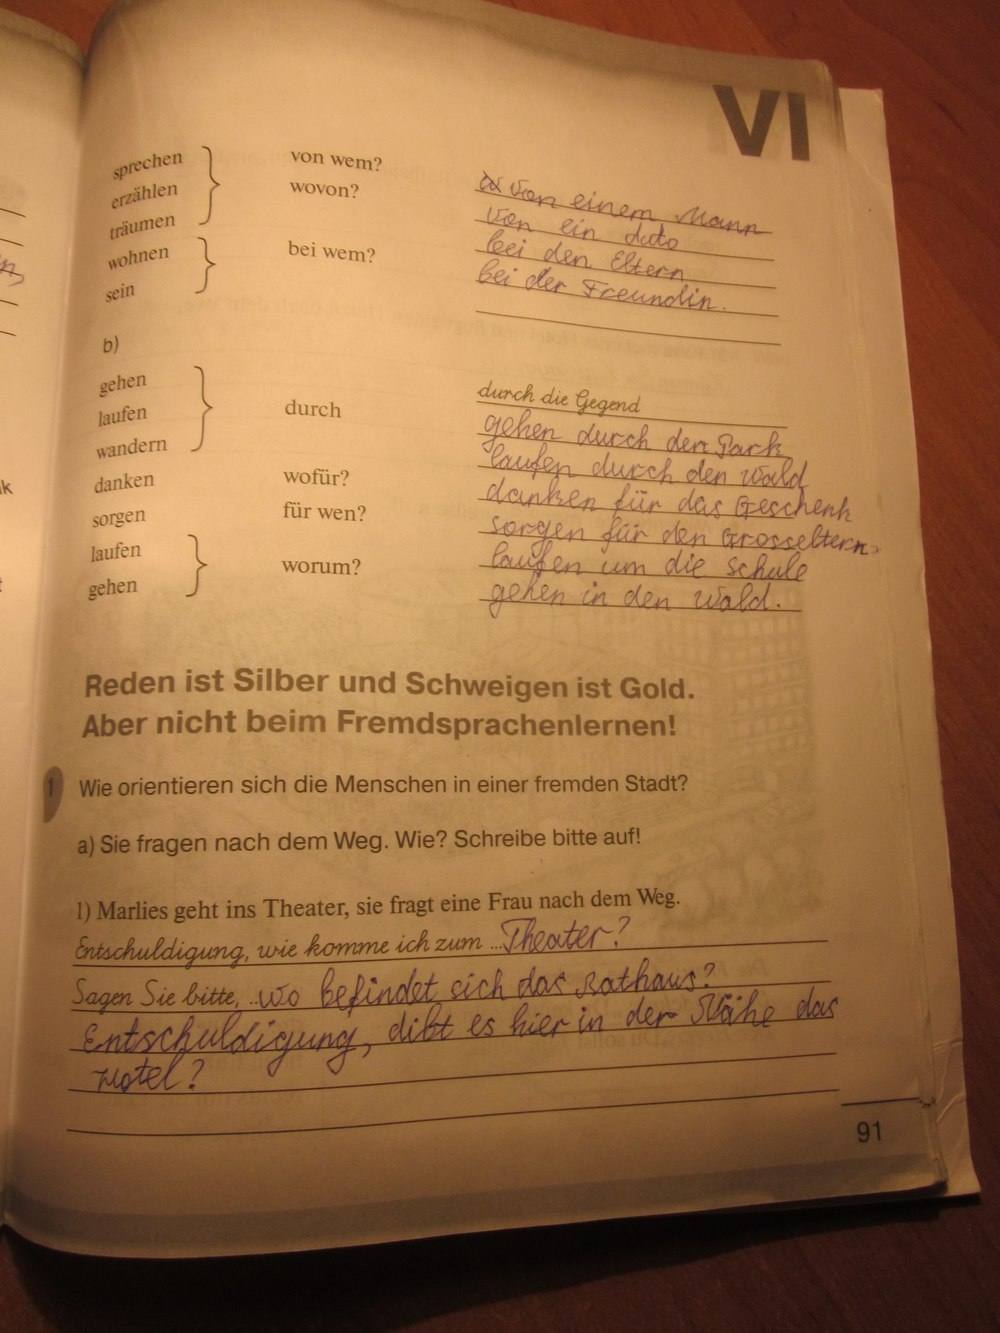 VI
sprechen
erzählen
träumen
von wem?
wovon?
von einem Mann
von ein Auto
wohnen
sein
bei wem?
bei den Eltern
bei der Freundin.
b)
gehen
laufen
wandern
durch
durch die Gegend
gehen durch den Park
laufen durch den Wald
danken
wofür?
danken für das Geschenk
sorgen
für wen?
sorgen für den Grosseltern.
laufen
gehen
worum?
laufen um die Schule
gehen in den Wald.
Reden ist Silber und Schweigen ist Gold.
Aber nicht beim Fremdsprachenlernen!
1 Wie orientieren sich die Menschen in einer fremden Stadt?
a) Sie fragen nach dem Weg. Wie? Schreibe bitte auf!
1) Marlies geht ins Theater, sie fragt eine Frau nach dem Weg.
Entschuldigung, wie komme ich zum ... Theater?
Sagen Sie bitte, ... wo befindet sich das Rathaus?
Entschuldigung, dibt es hier in der Nähe das
Hotel?
91